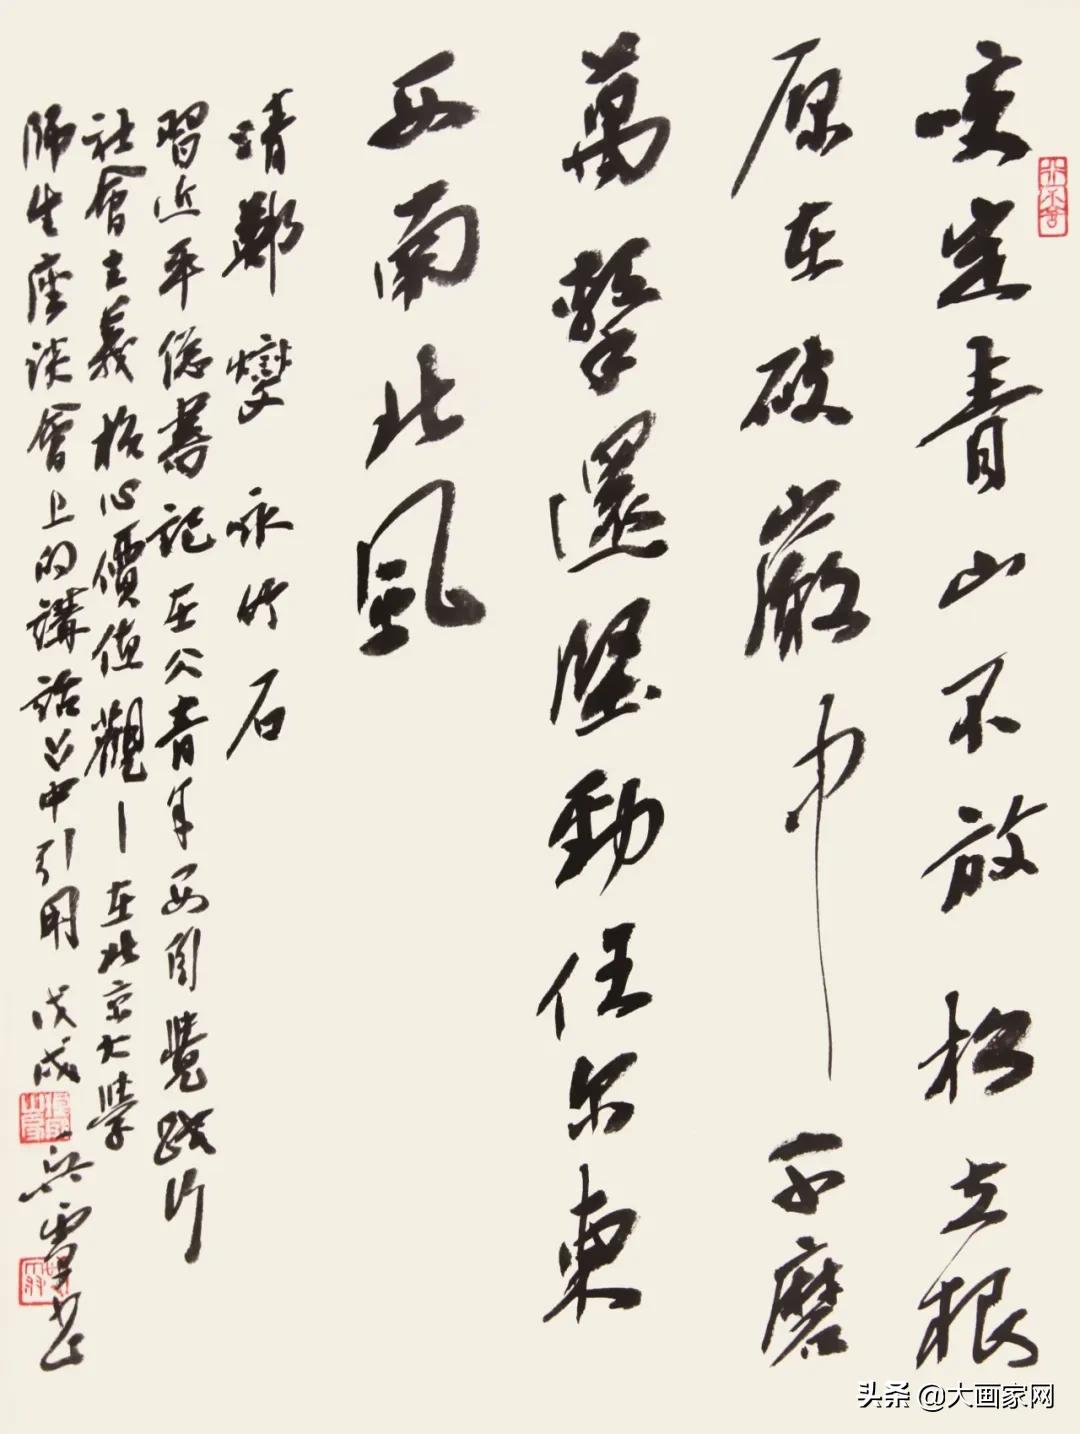 咬定青山不放松立根
原在破巖中千磨
萬擊還堅勁任尔東
西南北風
清鄭燮 咏竹石
習近平總書記在《青年要自覺踐行
社會主義核心價值觀—在北京大學
師生座談會上的講話》中引用 戊戌
头条 @大画家网